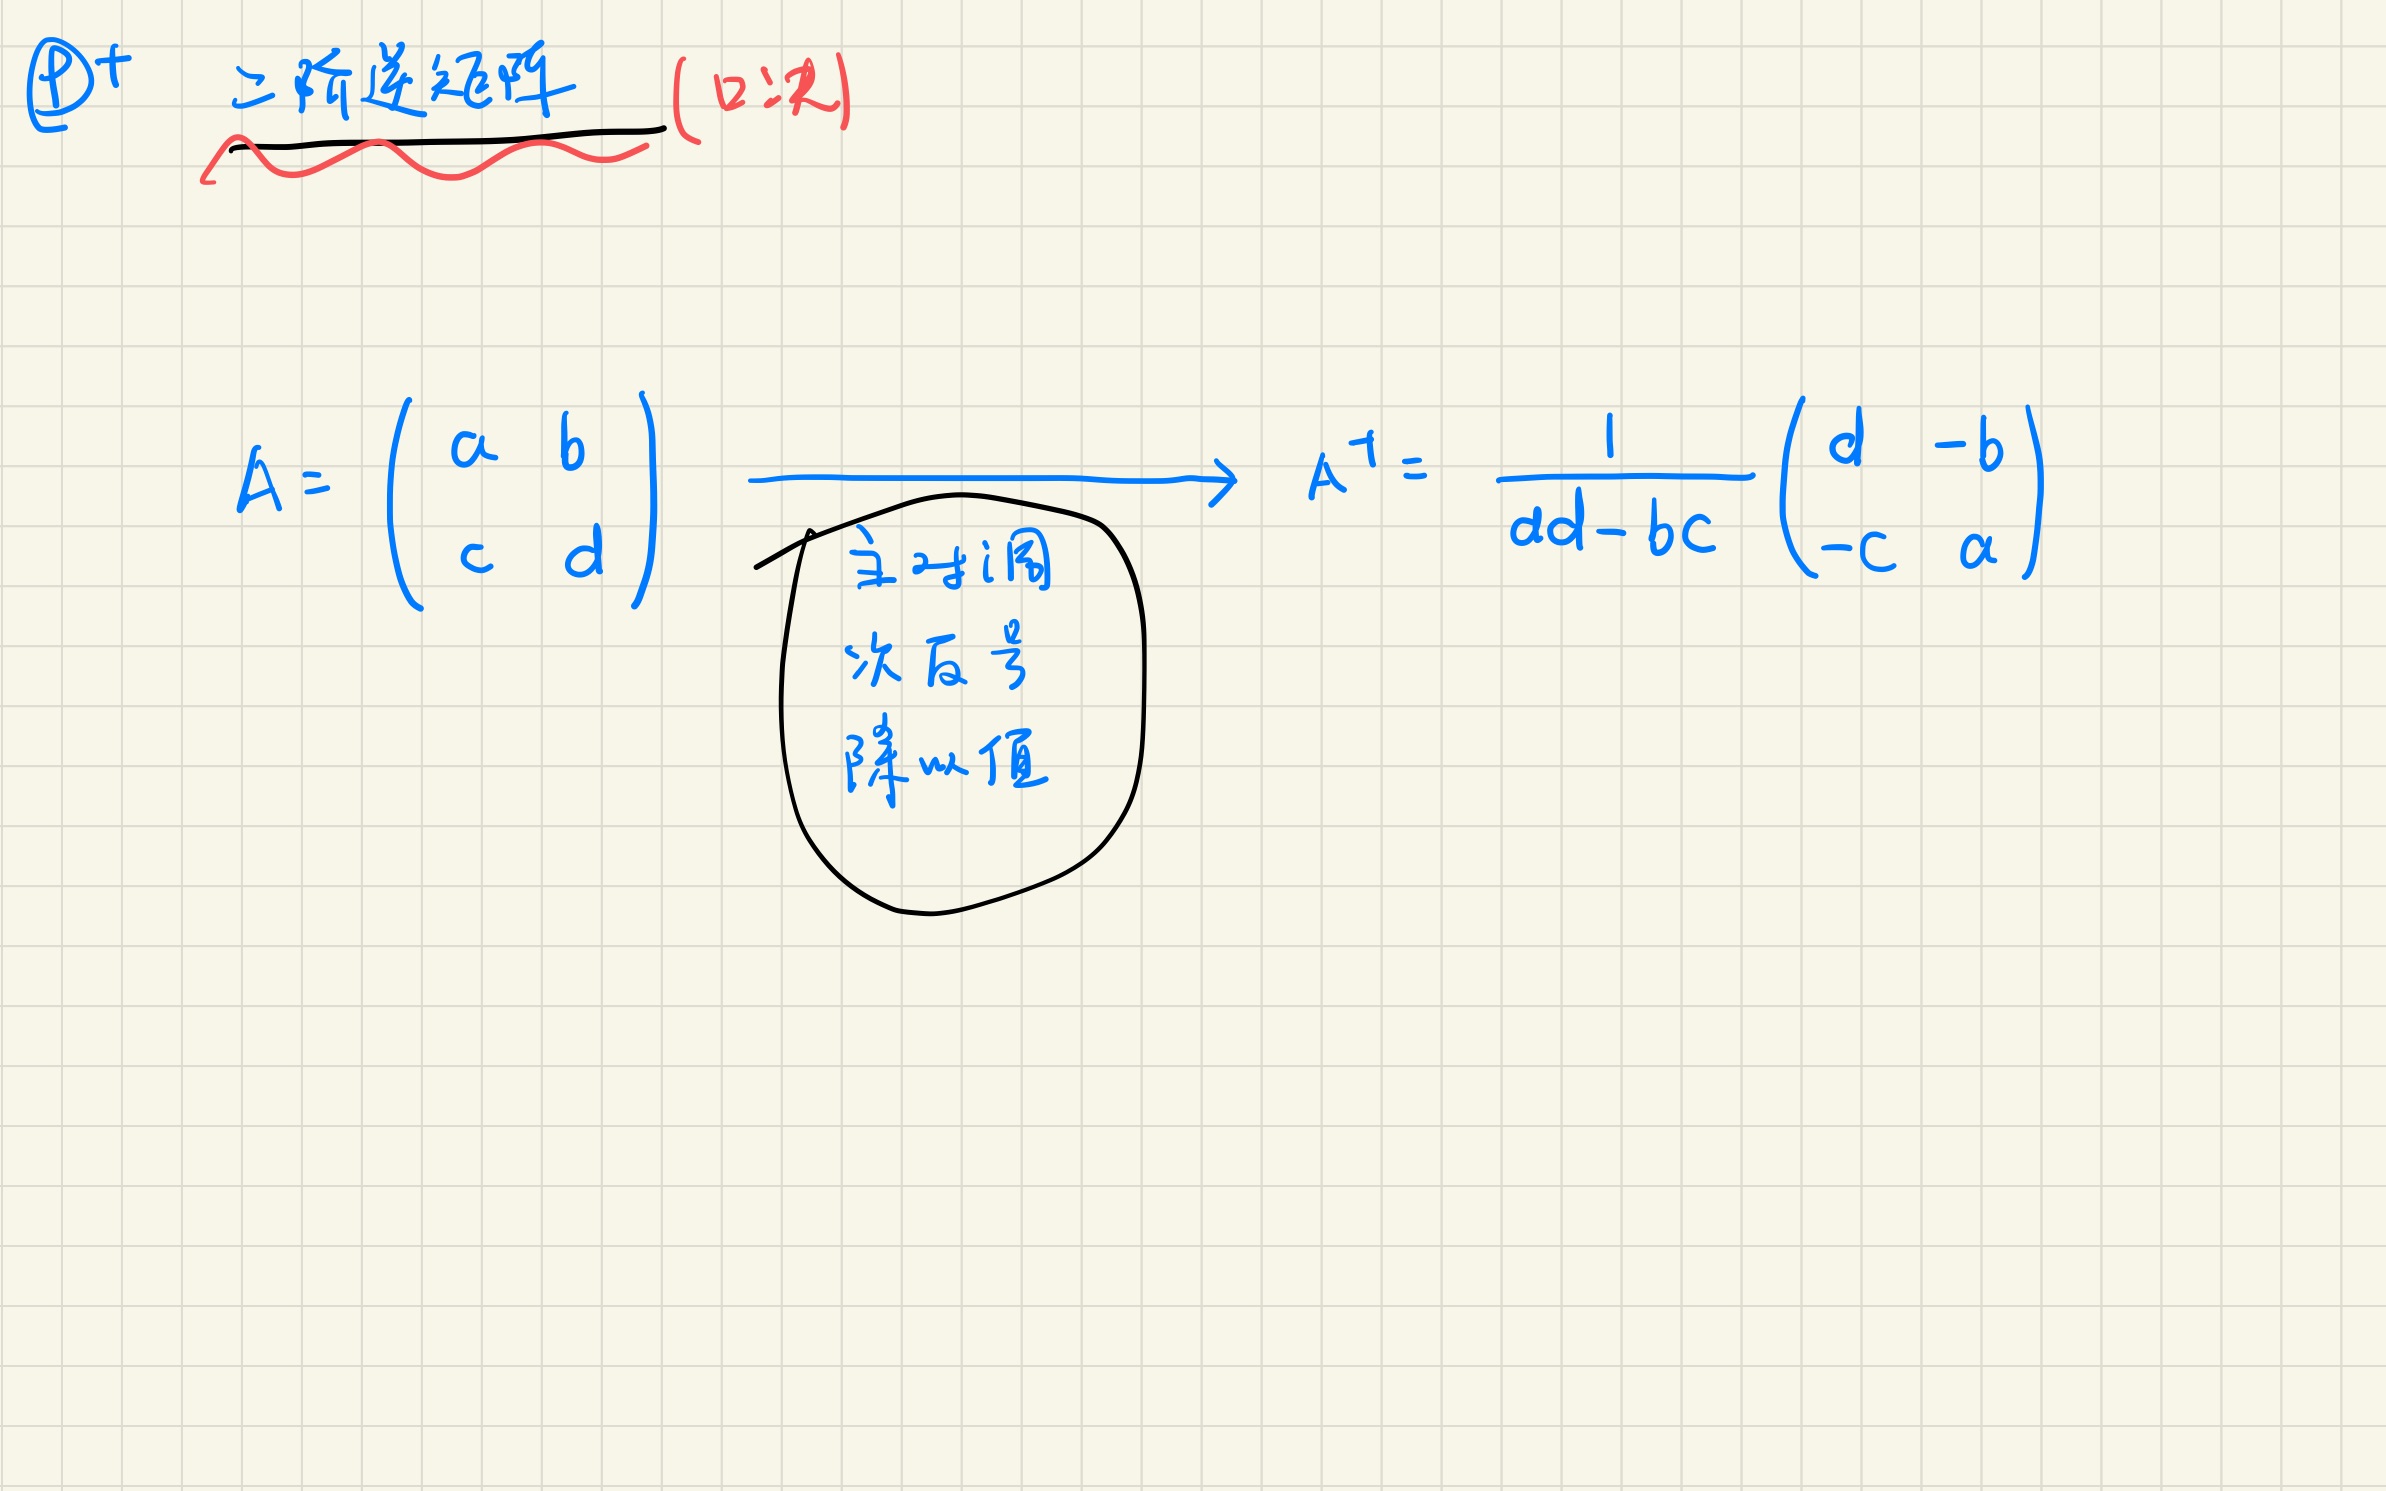 P+ 二阶逆矩阵 (口诀)
A = ( a b
c d ) → A⁻¹ = 1/(ad-bc) ( d -b
-c a )
主对调
次反号
除以值